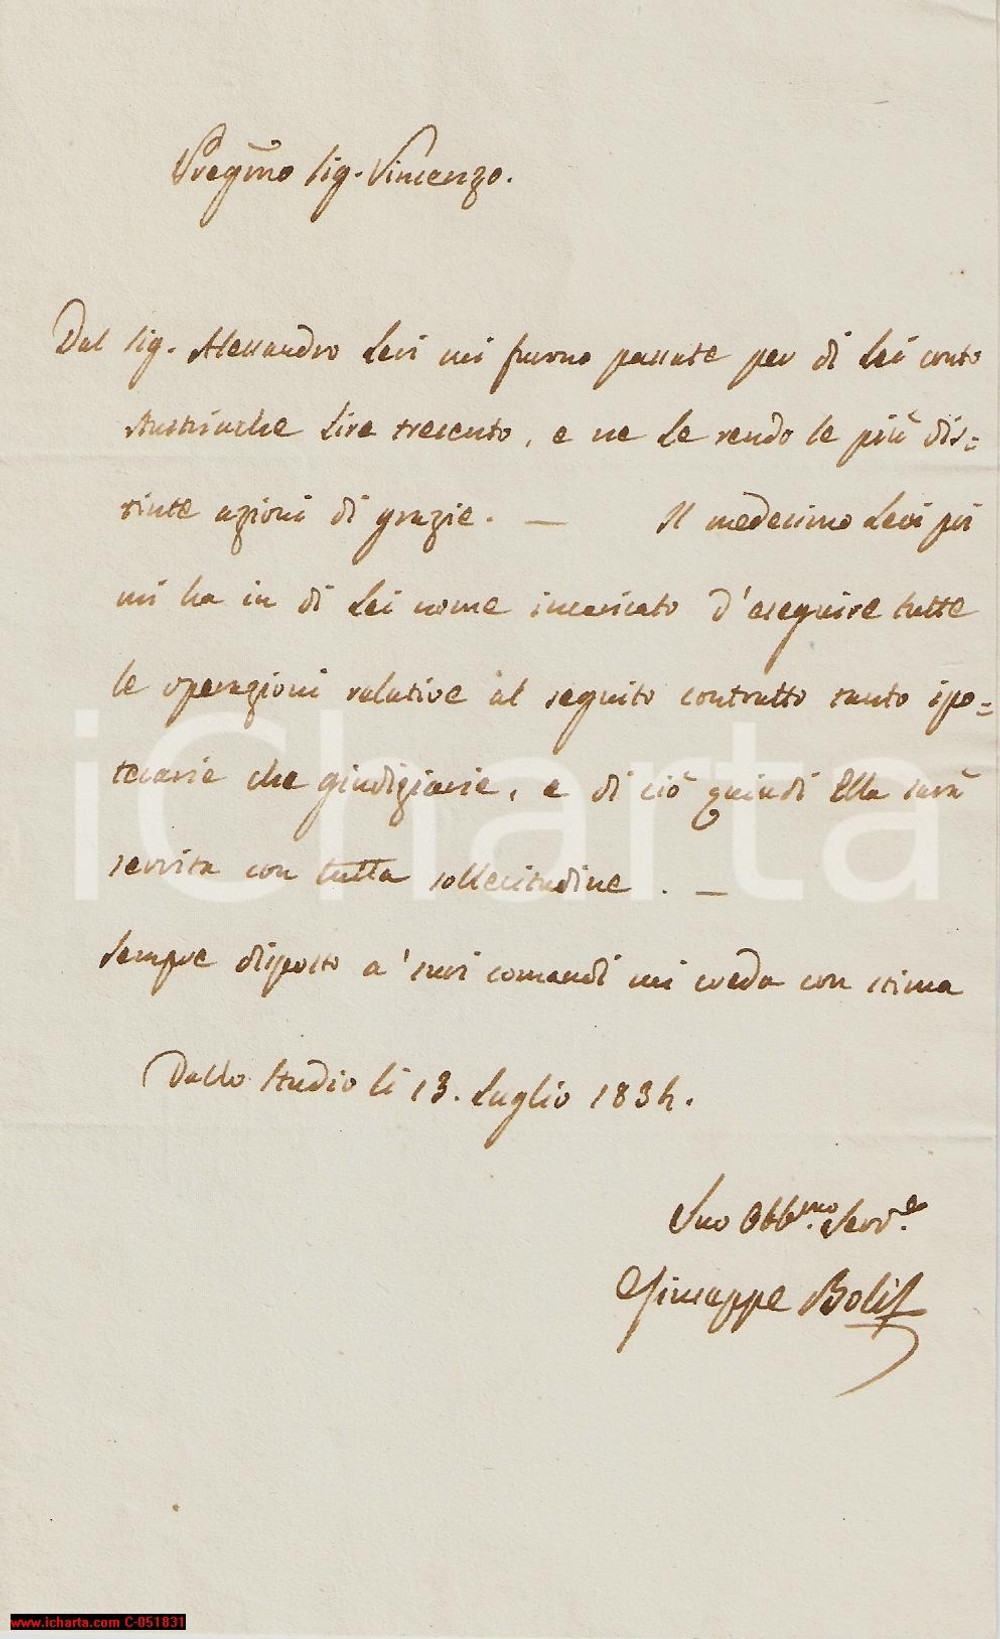 Pregmo Sig. Vincenzo.
Dal Sig. Alessandro Levi mi furno passate per di Lei conto
Austriache Lire trecento, e ne Le rendo le più dis=
tinte azioni di grazie. — Il medesimo Levi poi
mi ha in di Lei nome incaricato d'eseguire tutte
le operazioni relative al seguito contratto tanto ipo=
tecarie che giudiziarie, e di ciò quindi Ella sarà
servita con tutta sollecitudine. —
Sempre disposto a' suoi comandi mi creda con stima
Dallo Studio li 13. Luglio 1834.
Suo Obbmo. Servе.
Giuseppe Bolis
iCharta
www.icharta.com C-051831